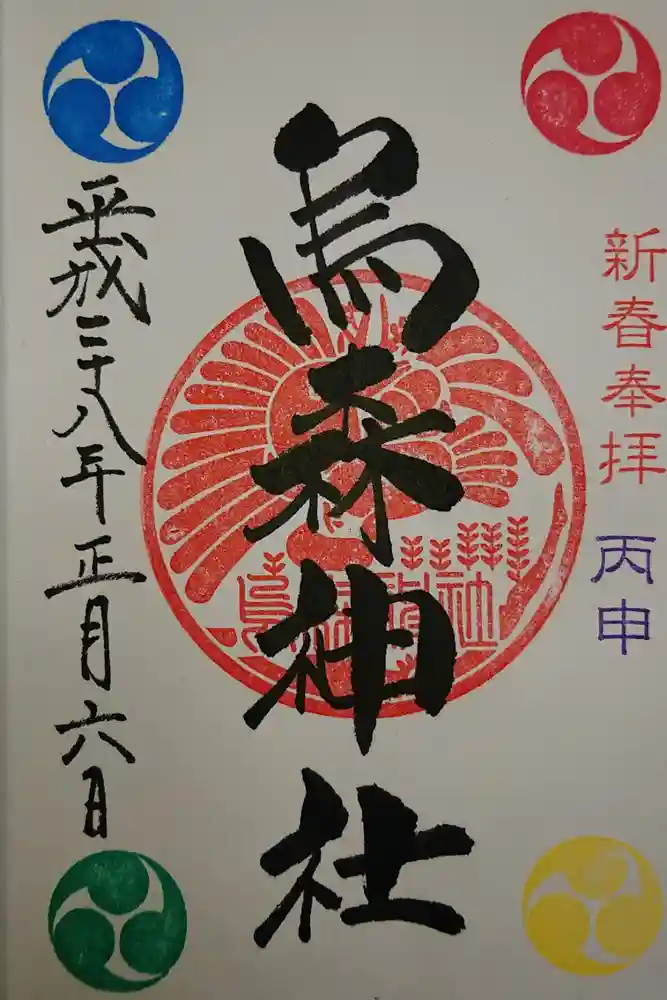 新春奉拝 丙申
烏森神社
平成二十八年正月六日